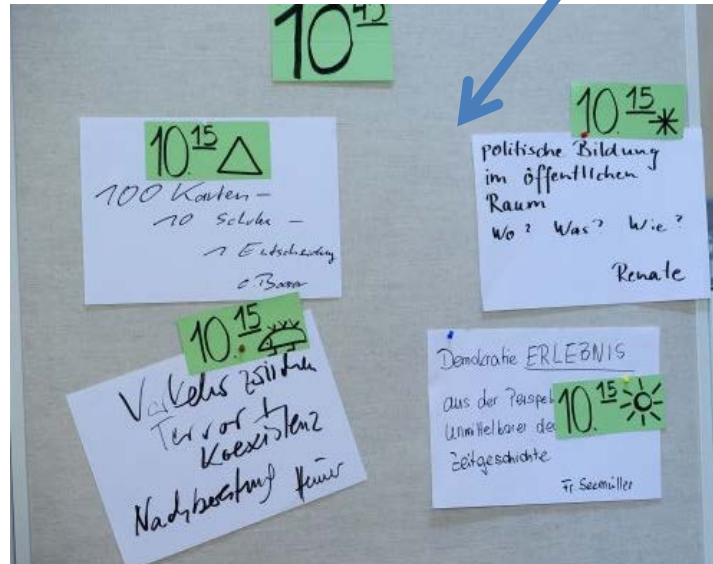 10 45
10.15
100 Karten -
10 Schuhe -
1 Entscheidung
10.15
politische Bildung
im öffentlichen
Raum
Wo? Was? Wie?
Renate
10.15
Verkehr zwischen
Terror +
Koexistenz
Nachbereitung
Demokratie ERLEBNIS
aus der Perspe
10.15
unmittelbarer de
Zeitgeschichte
Fr. Seemüller